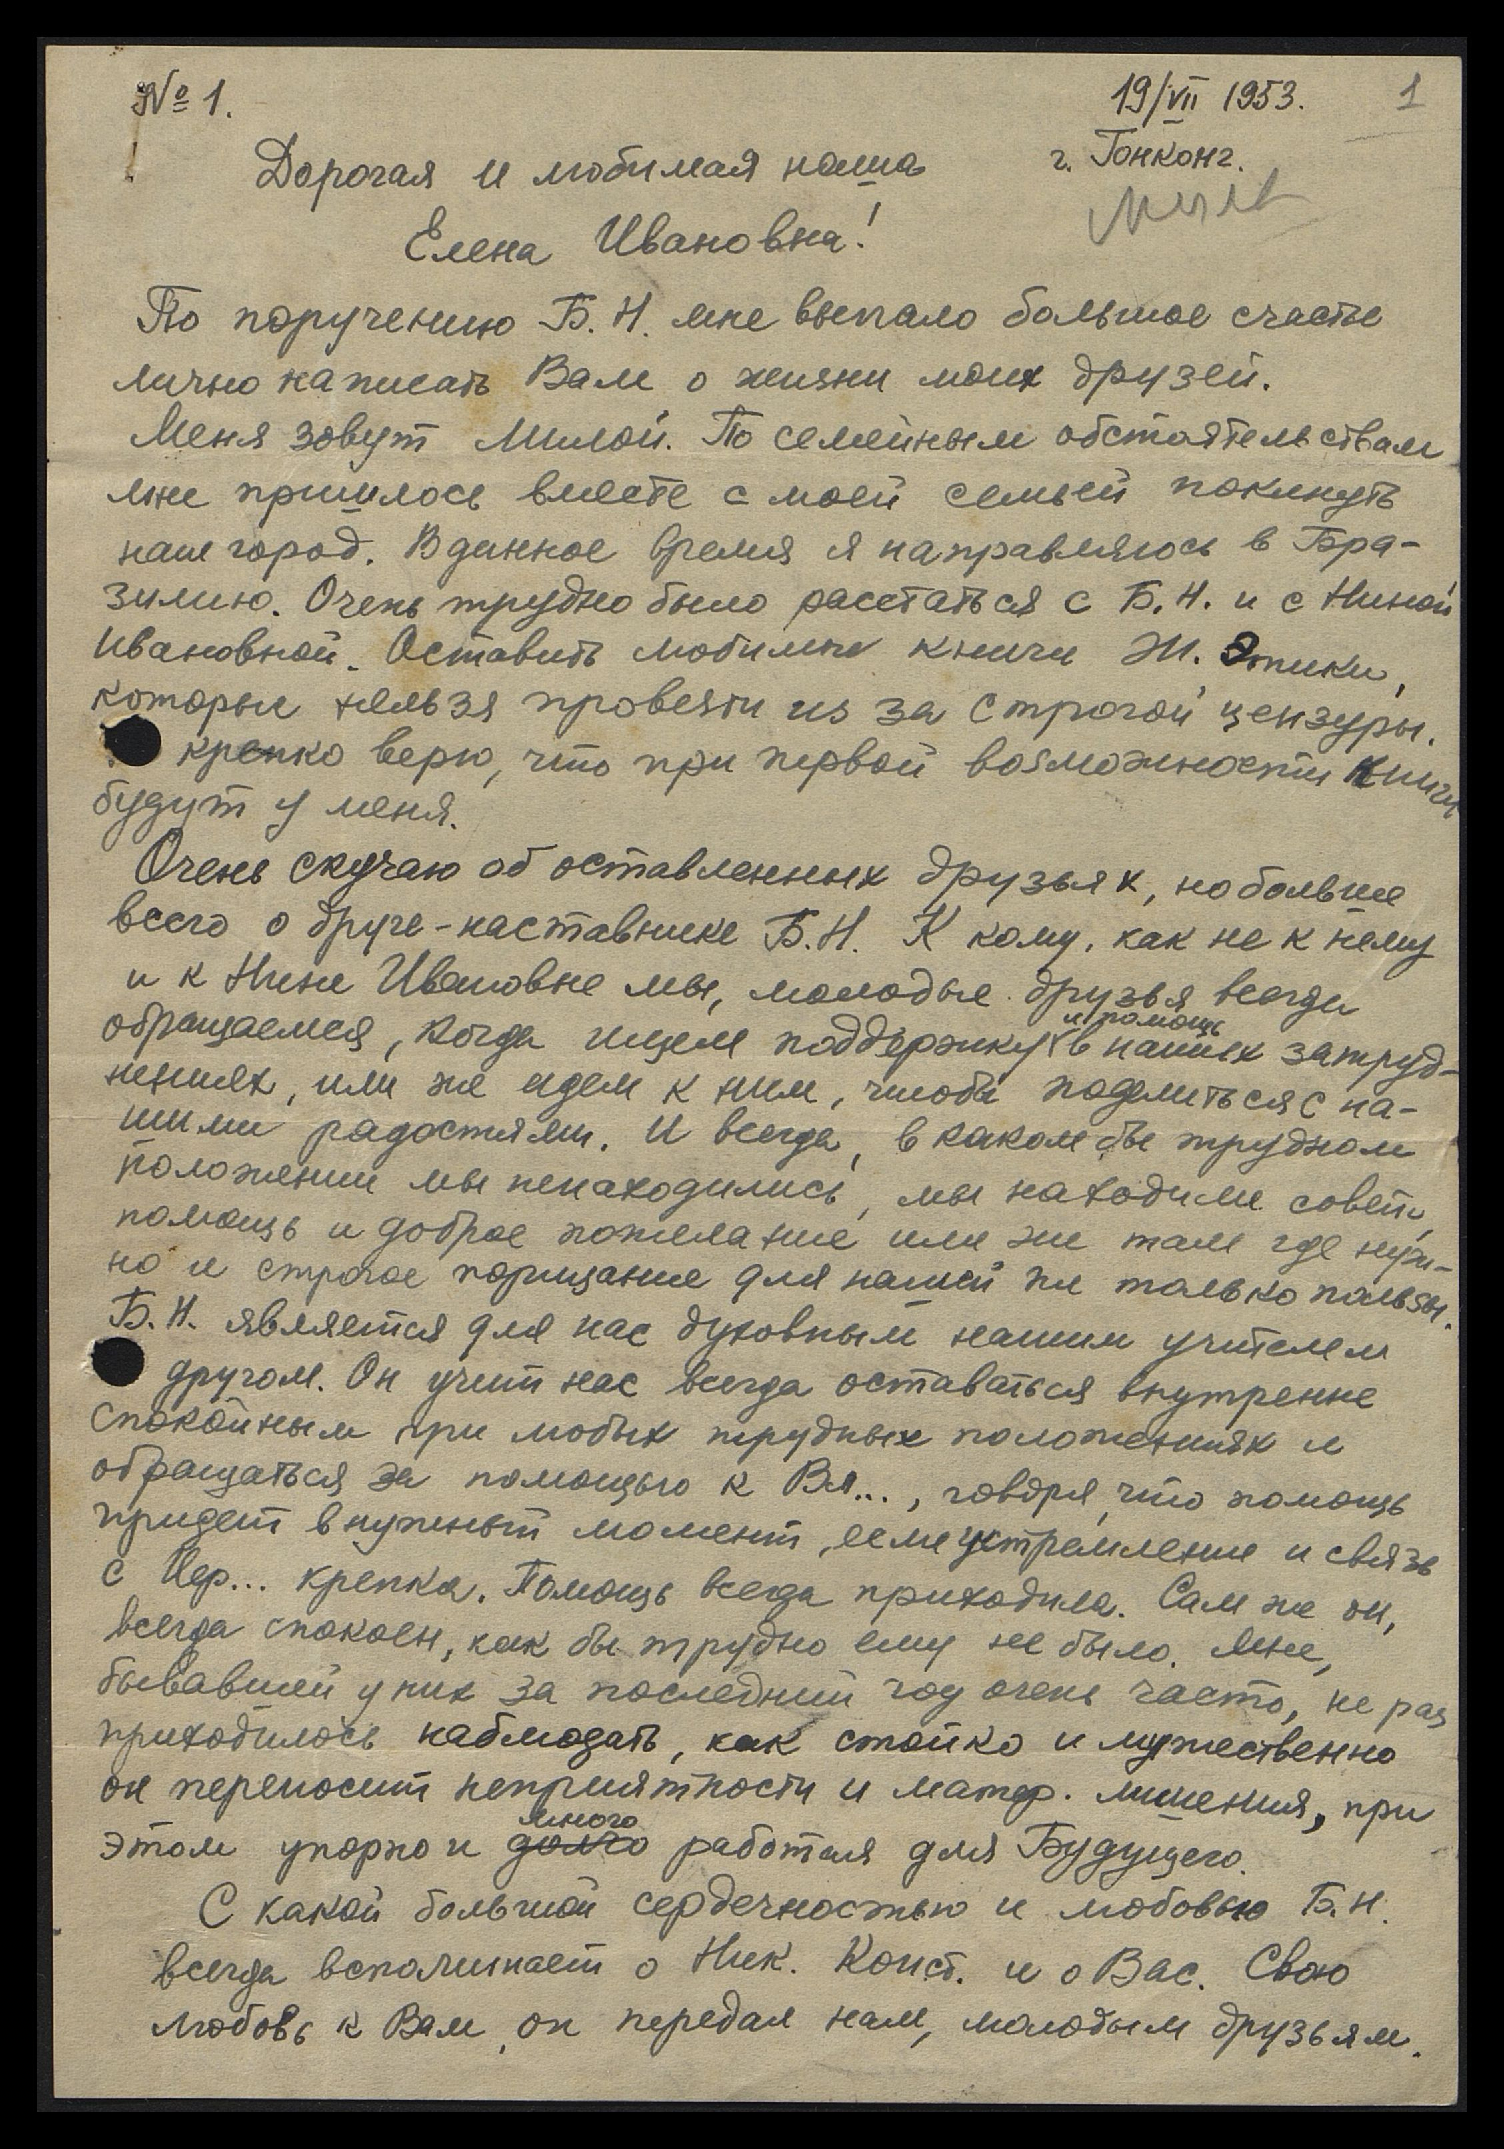 № 1.
19/VII 1953.
1
г. Гонконг.
Дорогая и любимая наша
Елена Ивановна!
По поручению Б. Н. мне выпало большое счастье
лично написать Вам о жизни моих друзей.
Меня зовут Милой. По семейным обстоятельствам
мне пришлось вместе с моей семьей покинуть
наш город. В данное время я направляюсь в Бра-
зилию. Очень трудно было расстаться с Б. Н. и с Ниной
Ивановной. Оставить любимые книги Ж. Этики,
которые нельзя провезти из за строгой цензуры.
крепко верю, что при первой возможности книги
будут у меня.
Очень скучаю об оставленных друзьях, но больше
всего о друге-наставнике Б. Н. К кому, как не к нему
и к Нине Ивановне мы, молодые друзья всегда
обращаемся, когда ищем поддержку и помощь в наших затруд-
нениях, или же идем к ним, чтобы поделиться с на-
шими радостями. И всегда, в каком бы трудном
положении мы ненаходились, мы находим совет,
помощь и доброе пожелание или же там где нуж-
но и строгое порицание для нашей же только пользы.
Б. Н. является для нас духовным нашим учителем
другом. Он учит нас всегда оставаться внутренне
спокойным при любых трудных положениях и
обращаться за помощью к Вл..., говоря, что помощь
придет в нужный момент, если устремление и связь
с Иер... крепка. Помощь всегда приходила. Сам же он,
всегда спокоен, как бы трудно ему не было. Мне,
бывавшей у них за последний год очень часто, не раз
приходилось наблюдать, как стойко и мужественно
он переносит неприятности и матер. лишения, при
этом упорно и долго много работая для Будущего.
С какой большой сердечностью и любовью Б. Н.
всегда вспоминает о Ник. Конст. и о Вас. Свою
любовь к Вам, он передал нам, молодым друзьям.